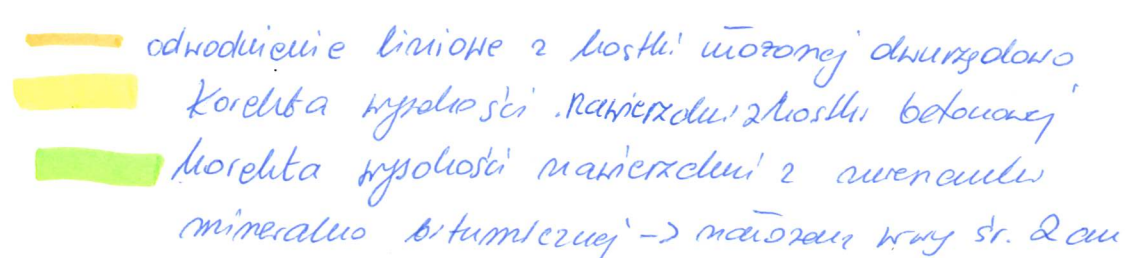 odwodnienie liniowe z kostki ułożonej dwurzędowo
Korekta wysokości nawierzchni z kostki betonowej
korekta wysokości nawierzchni z mieszanki
mineralno bitumicznej -> nałożenie w-wy śr. 2 cm